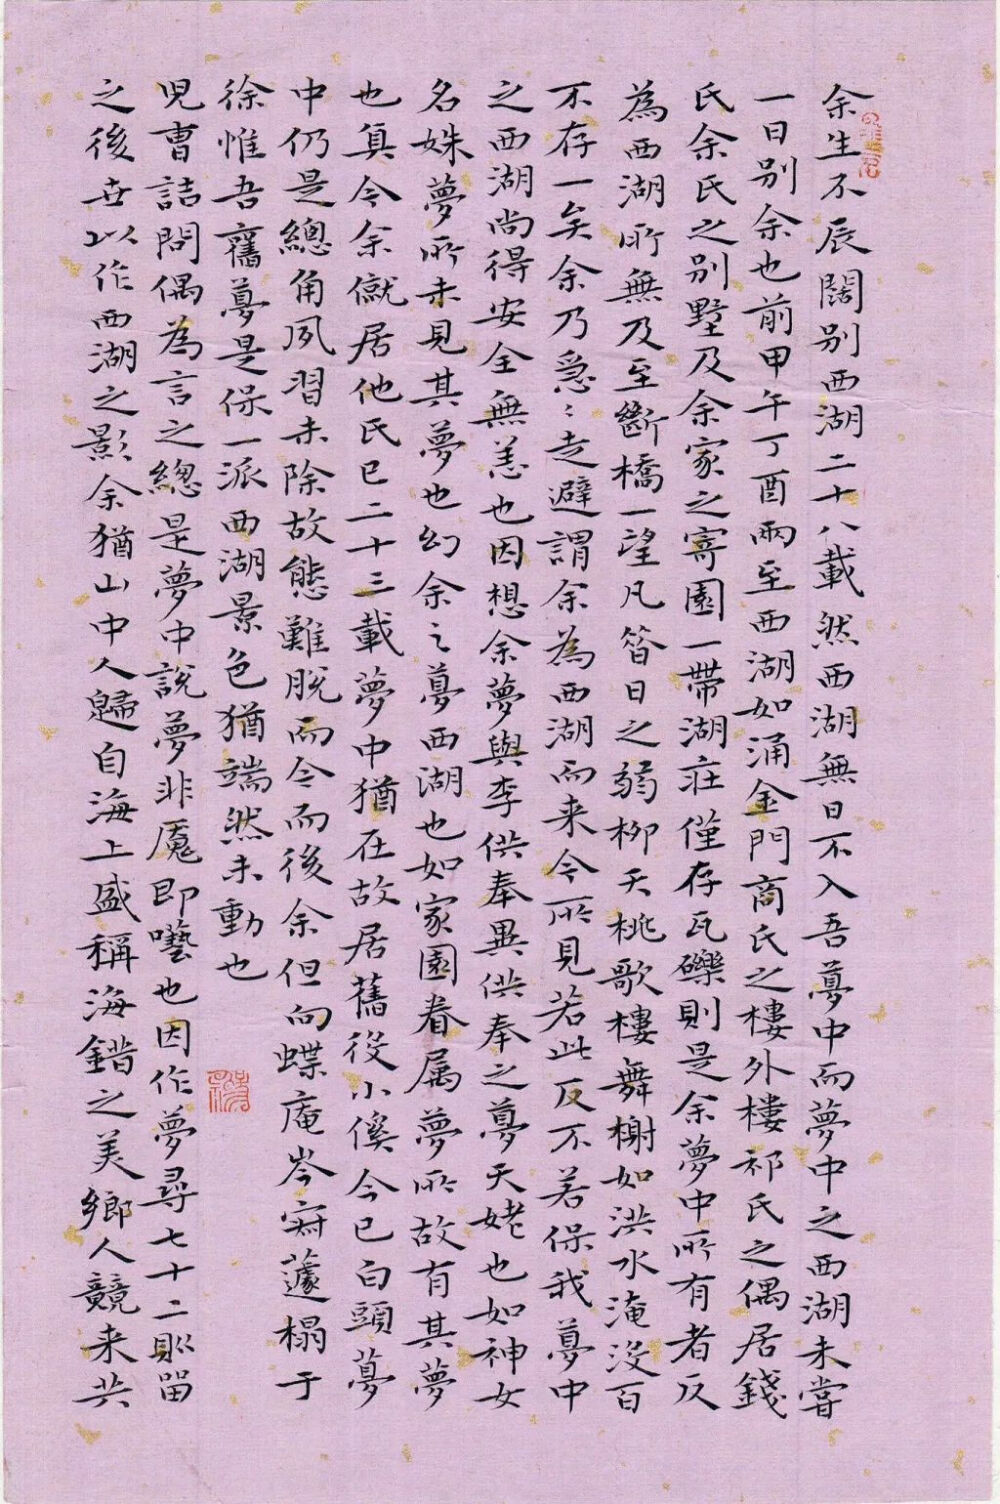 余生不辰闊别西湖二十八載然西湖無日不入吾夢中而夢中之西湖未嘗
一日别余也前甲午丁酉兩至西湖如涌金門商氏之樓外樓祁氏之偶居錢
氏余氏之别墅及余家之寄園一帶湖莊僅存瓦礫則是余夢中所有者反
為西湖所無及至斷橋一望凡昝日之弱柳夭桃歌樓舞榭如洪水淹没百
不存一矣余乃急〻走避謂余為西湖而来今所見若此反不若保我夢中
之西湖尚得安全無恙也因想余夢與李供奉異供奉之夢天姥也如神女
名姝夢所未見其夢也幻余之夢西湖也如家園眷属夢所故有其夢
也真今余僦居他氏已二十三載夢中猶在故居舊役小傒今已白頭夢
中仍是總角夙習未除故態難脱而今而後余但向蝶庵岑寂蘧榻于
徐惟吾舊夢是保一派西湖景色猶端然未動也
児曹詰問偶為言之總是夢中說夢非魘即囈也因作夢尋七十二則留
之後世以作西湖之影余猶山中人歸自海上盛稱海錯之美鄉人競来共